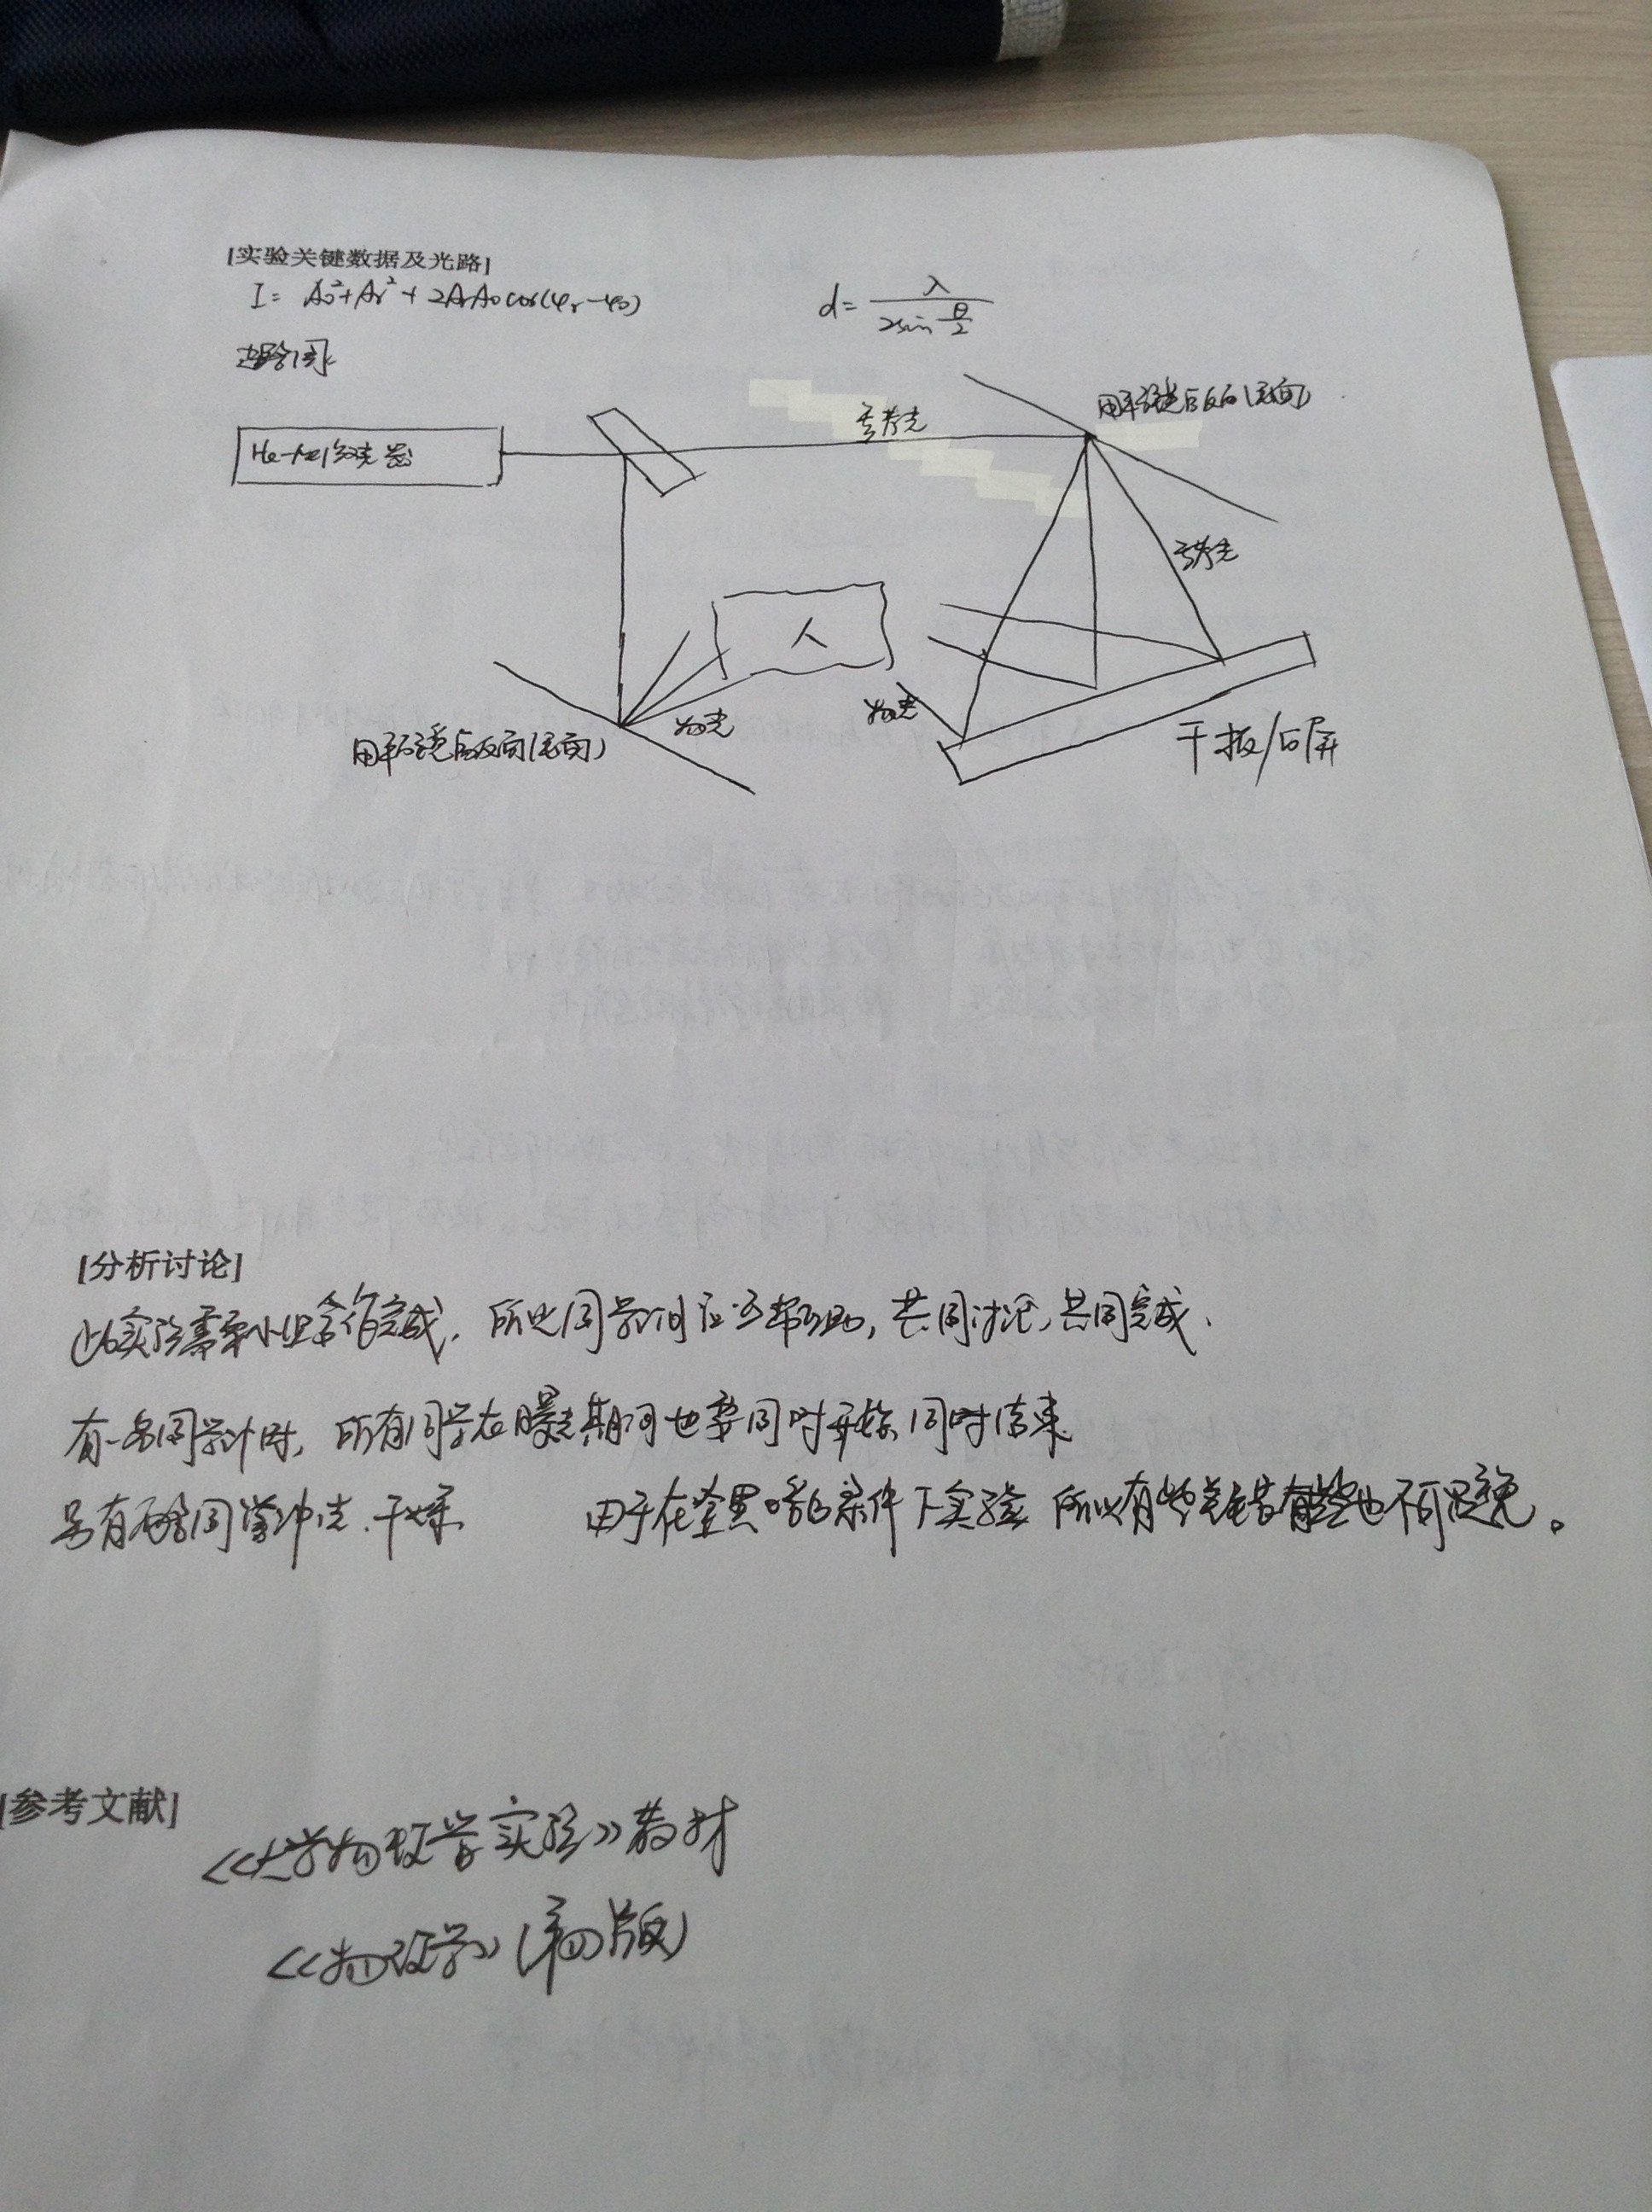 [实验关键数据及光路]
I = Ao²+Ar²+2ArAocos(φr-φo)
d = λ/(2sin θ/2)
光路图
He-Ne激光器
参考光
用平面镜后反面(毛面)
参考光
人
物光
物光
用平面镜后反面(毛面)
干板/白屏
[分析讨论]
此实验需要小组合作完成，所以同学们应互帮互助，共同讨论，共同完成，
有一名同学计时，所有同学在曝光期间也要同时开始同时结束
另有两名同学冲洗、干燥 由于在全黑暗的条件下实验 所以有些也不可避免。
[参考文献]
<<大学物理学实验>>教材
<<物理学>>(第四版)